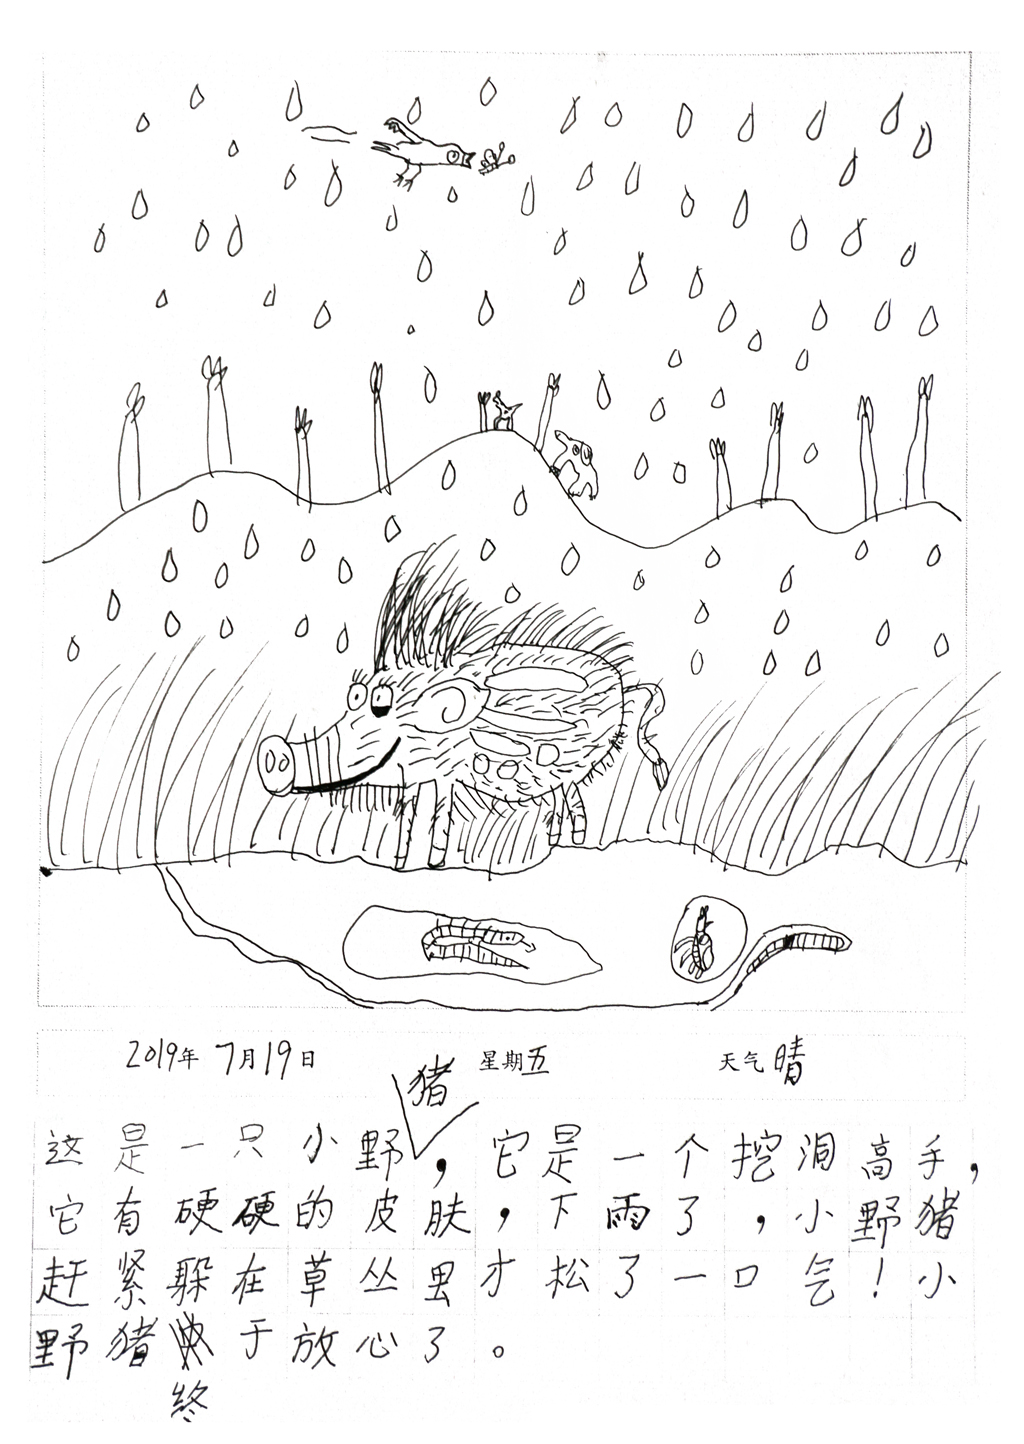 2019年 7月19日 星期五 天气晴
这是一只小野猪，它是一个挖洞高手，
它有硬硬的皮肤，下雨了，小野猪
赶紧躲在草丛里才松了一口气！小
野猪终于放心了。